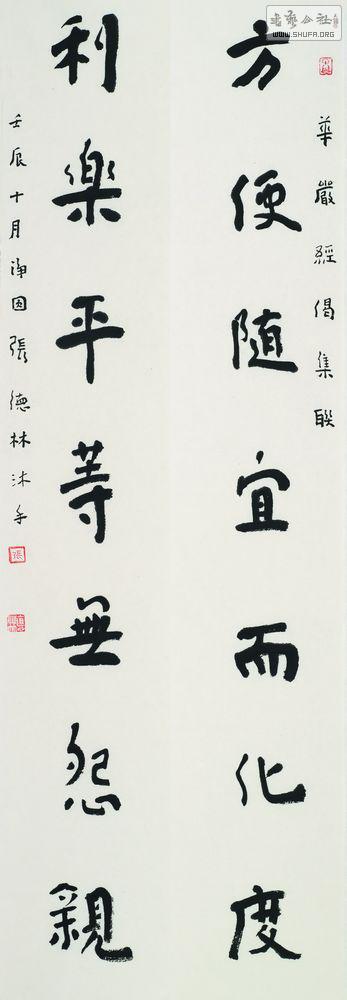 華嚴經偈集聯
方便随宜而化度
利樂平等無怨親
壬辰十月淨因張德林沐手
張
书艺公社
WWW.SHUFA.ORG